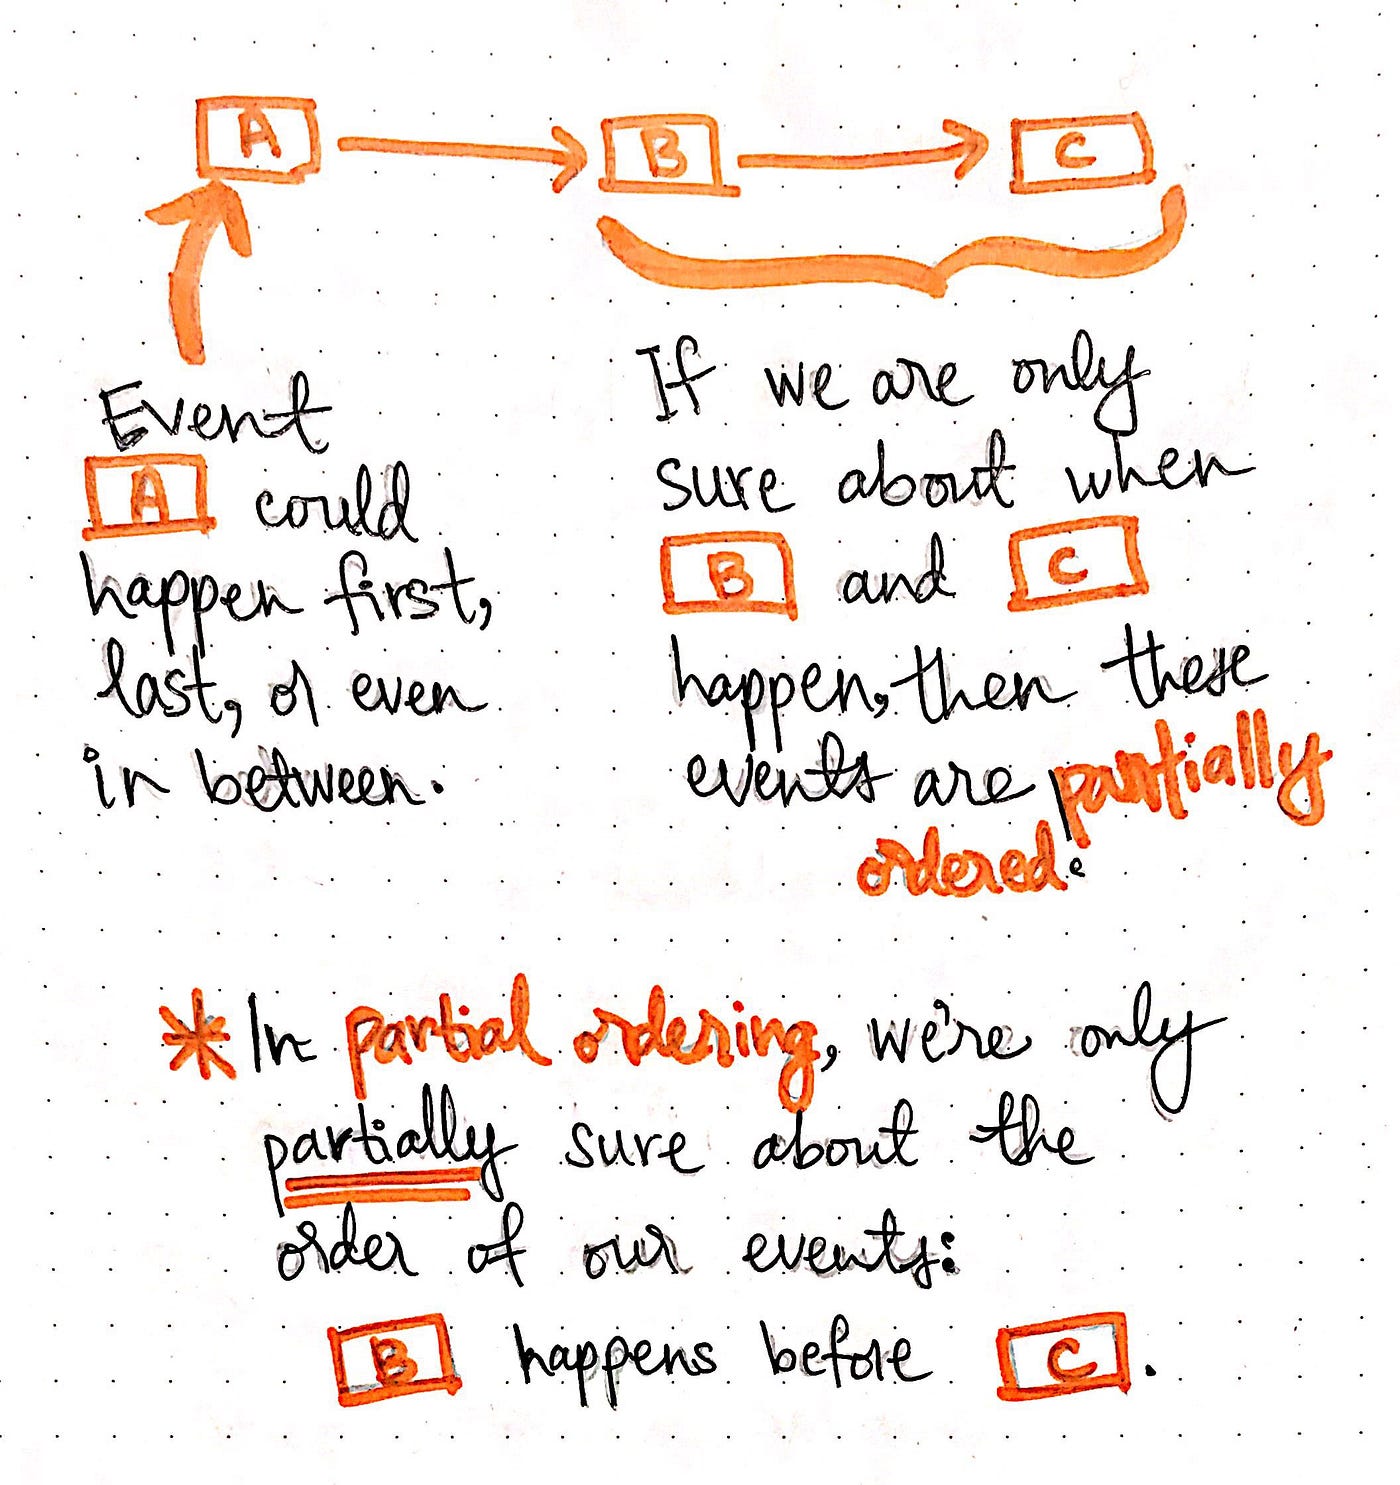 A B C
Event
A could
happen first,
last, or even
in between.
If we are only
sure about when
B and C
happen, then these
events are partially
ordered.
* In partial ordering, we're only
partially sure about the
order of our events:
B happens before C.